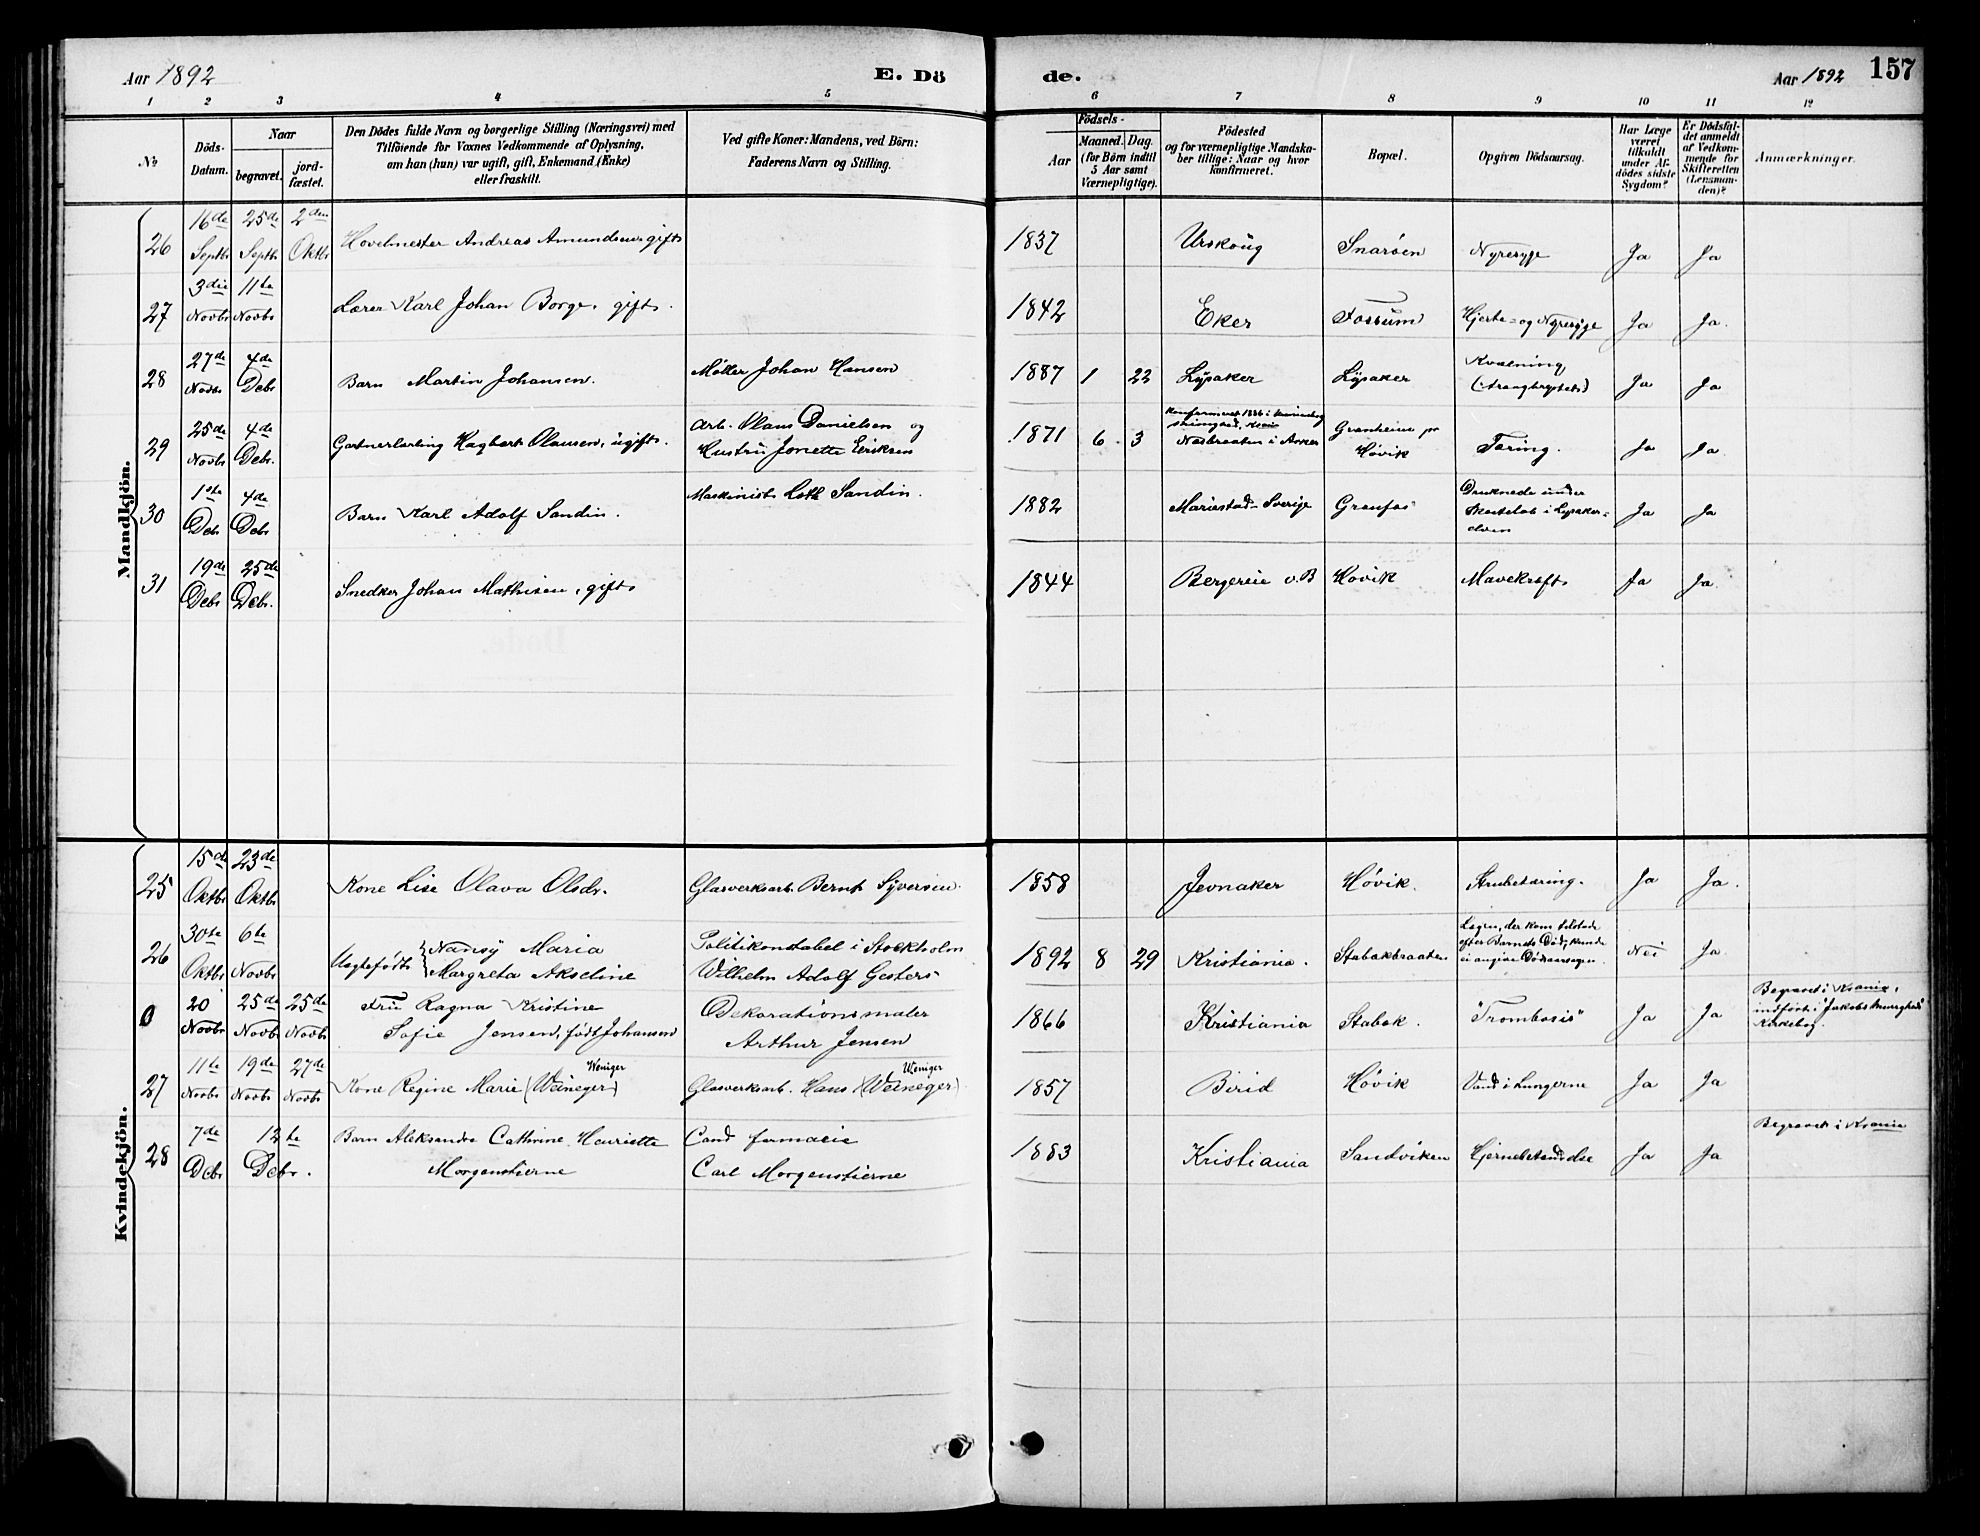 Aar 1892
E. Dö
de.
Aar 1892
157
1 2 3 4 5 6 7 8 9 10 11 12
No
Döds-
Datum.
Naar
begravet.
jord-
fæstet.
Den Dödes fulde Navn og borgerlige Stilling (Næringsvei) med
Tilföiende for Voxnes Vedkommende af Oplysning,
om han (hun) var ugift, gift, Enkemand (Enke)
eller fraskilt.
Ved gifte Koner: Mandens, ved Börn:
Faderens Navn og Stilling.
Födsels-
Aar
Maaned. Dag.
(for Börn indtil
5 Aar samt
Værnepligtige).
Födested
og for værnepligtige Mandska-
ber tillige: Naar og hvor
konfirmeret.
Bopæl.
Opgiven Dödsaarsag.
Har Læge
været
tilkaldt
under Af-
dödes sidste
Sygdom?
Er Dödsfal-
det anmeldt
af Vedkom-
mende for
Skifteretten
(Lensman-
den)?
Anmærkninger.
Mandkjön.
26
16de Septbr
25de Septbr
2den Oktbr
Hovelmester Andreas Amundsen, gift
1837
Urskoug
Snaröen
Nyresyge
Ja
Ja
27
3die Novbr
11te Novbr
Lærer Karl Johan Borge, gift.
1842
Eker
Fossum
Hjerte- og Nyresyge
Ja
Ja.
28
27de Novbr
4de Debr
Barn Martin Johansen.
Möller Johan Hansen
1887
1
22
Lysaker
Lysaker
Kvælning
Ja
Ja
29
25de Novbr
4de Debr.
Gartnerlærling Hagbart Olausen, ugift.
Arb. Olaus Danielsen og
Hustru Jonette Eriksen
1871
6
3
Konfirmeret 1886 i
Næsbraaten i Asker
Granheim pr
Hövik
Tæring.
Ja
Ja
30
1ste Debr
4de Debr
Barn Karl Adolf Sandin.
Maskinist Loth Sandin.
1882
Mariestad - Sverige
Granfos
Druknede under
Skøiteløb i Lysaker-
elven
Ja
Ja
31
19de Debr
25de Debr.
Snedker Johan Mathisen, gift
1844
Bergereie v. B
Hövik
Mavekræft
Ja
Ja.
Kvindekjön.
25
15de Oktbr
23de Oktbr
Kone Lise Olava Olsdr.
Glasverksarb. Bernt Syversen.
1858
Jevnaker
Hövik.
Strubetæring.
Ja
Ja.
26
30te Oktbr
6te Novbr
Uægtefödt Nansy Maria
Margreta Akseline
Politikonstabel i Stockholm
Wilhelm Adolf Gesters
1892
8
29
Kristiania.
Stabækbraaten
Lægen, der kom tilstede
efter Barnets Död, kunde
ei angive Dödsaarsagen.
Nei
Ja
0
20 Novbr
25de Novbr
25de Novbr
Fru Ragna Kristine
Sofie Jensen, födt Johansen
Dekorationsmaler
Arthur Jensen
1866
Kristiania
Stabæk.
"Trombosis"
Ja
Ja
Begravet i Krania,
indfört i Jakobs Menigheds
Kirkebog.
27
11te Novbr
19de Novbr
27de Novbr
Weniger
Kone Regine Marie (Weineger)
Weniger
Glasverksarb. Hans (Weineger)
1857
Birid
Hövik
Vand i Lungerne
Ja
Ja
28
7de Debr
12te Debr.
Barn Aleksandra Cathrine Henriette
Morgenstierne
Cand farmacie
Carl Morgenstierne
1883
Kristiania
Sandviken
Hjernebetændelse
Ja
Ja
Begravet i Krania